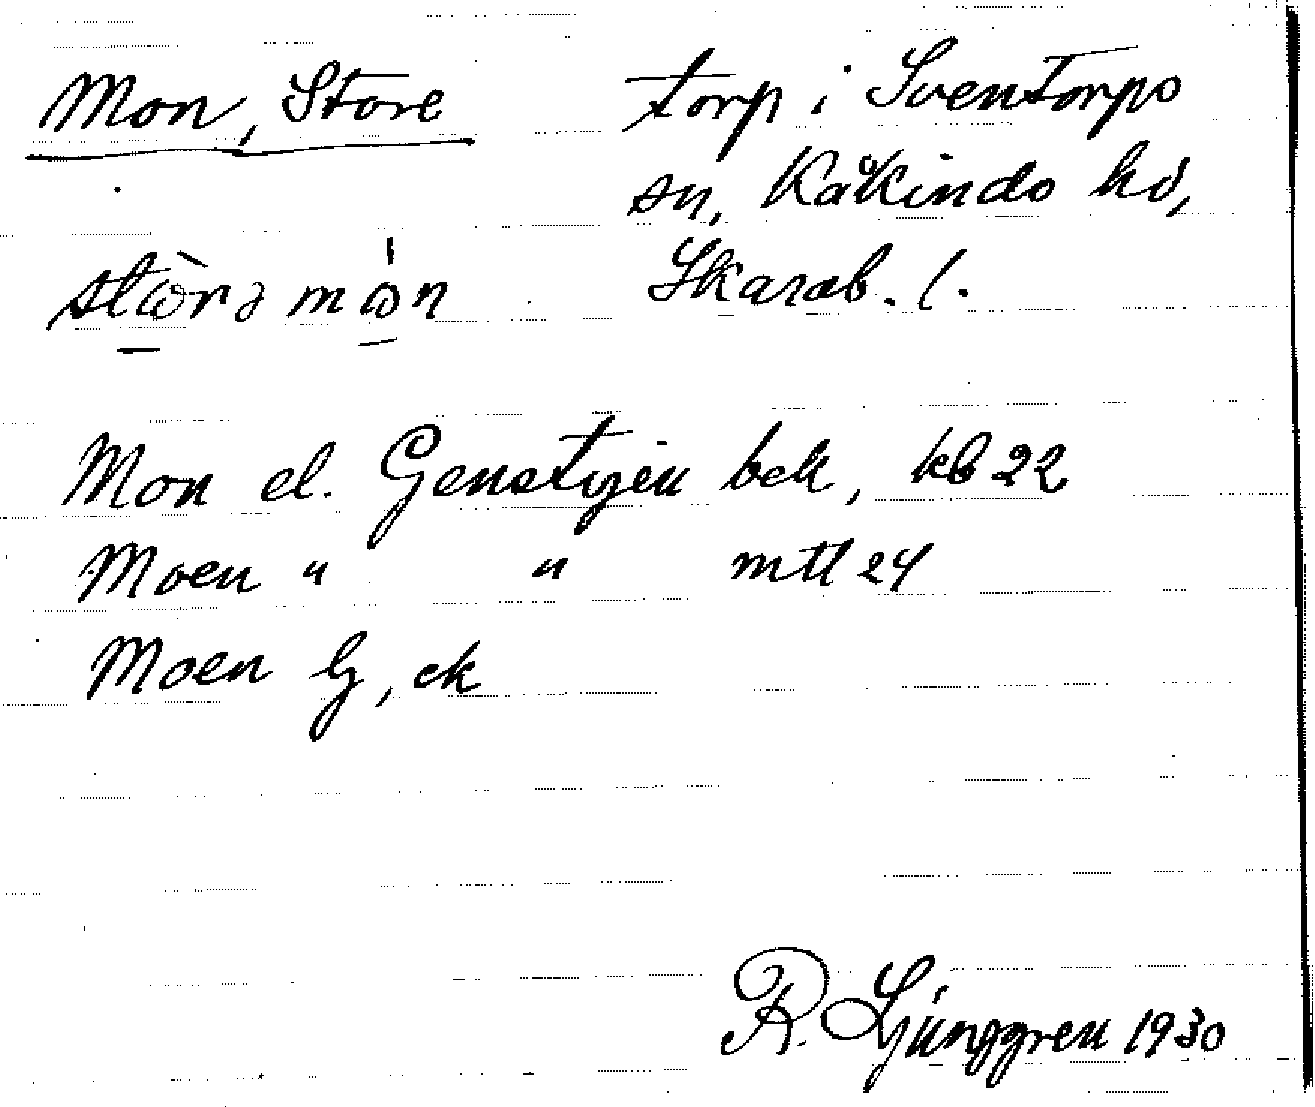 Mon, Store torp i Sventorps
sn, Kåkinds hd,
stωrə mωn Skarab. l.
Mon el. Genstigen bek, kb 22
Moen " " mtl 24
Moen G, ek
R. Ljunggren 1930